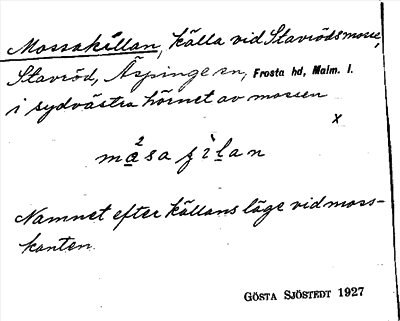 Mossakällan, källa vid Stavrödsmosse,
Stavröd, Äspinge sn, Frosta hd, Malm. l.
i sydvästra hörnet av mossen
x
Namnet efter källans läge vid moss-
kanten.
GÖSTA SJÖSTEDT 1927